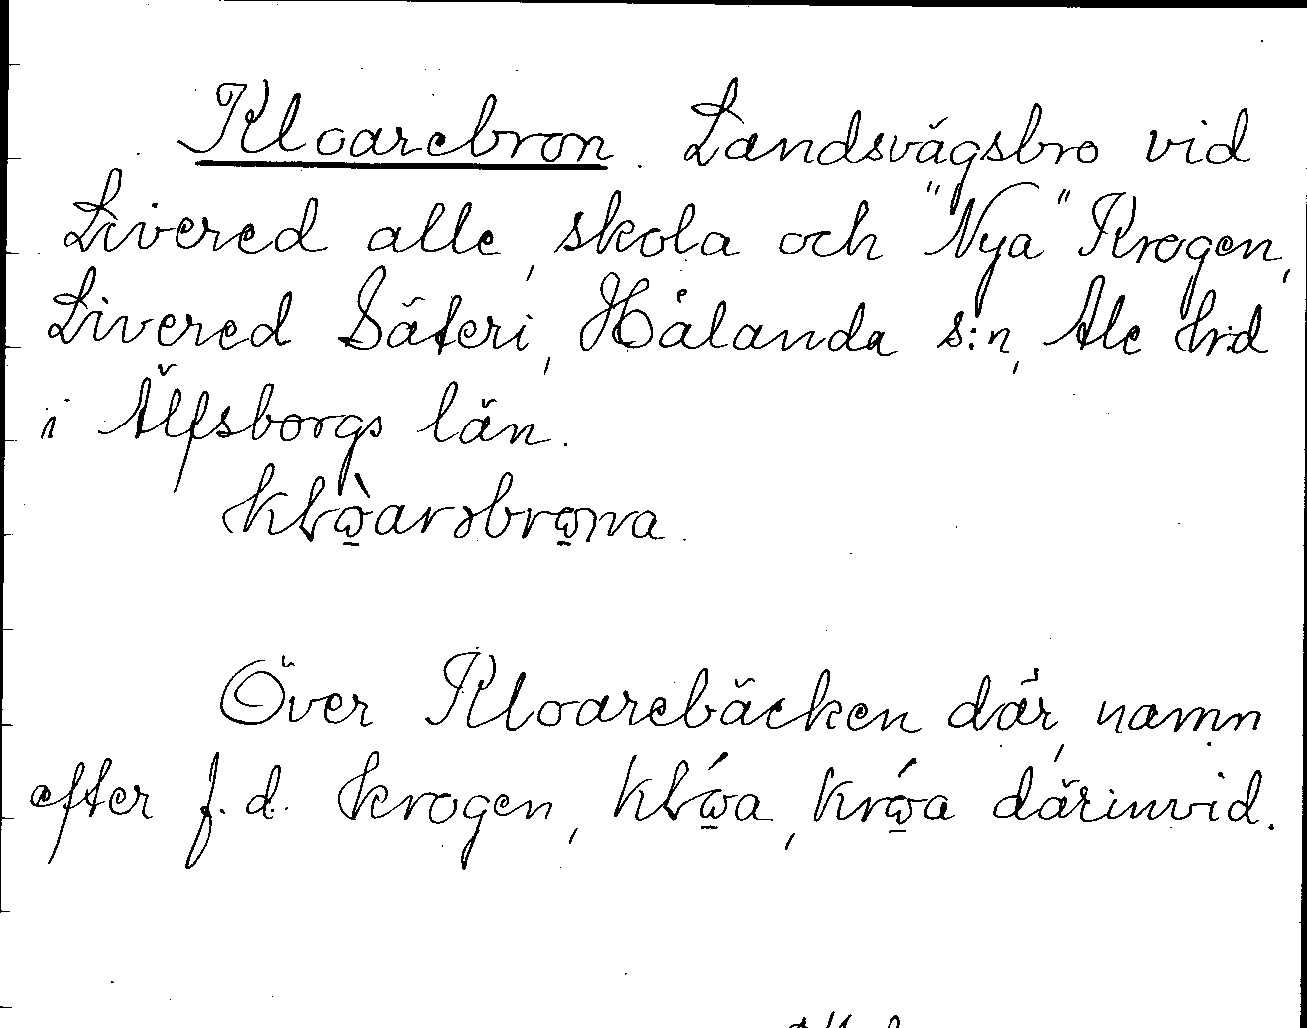 Kloarebron. Landsvägsbro vid
Livered alle, skola och "Nya" Krogen,
Livered Säteri, Hålanda s:n, Ale hrd
i Älfsborgs län.
klὼ̱arəbrω̱na.
Över Kloarebäcken där, namn
efter f.d. krogen, klώ̱a, krώ̱a därinvid.